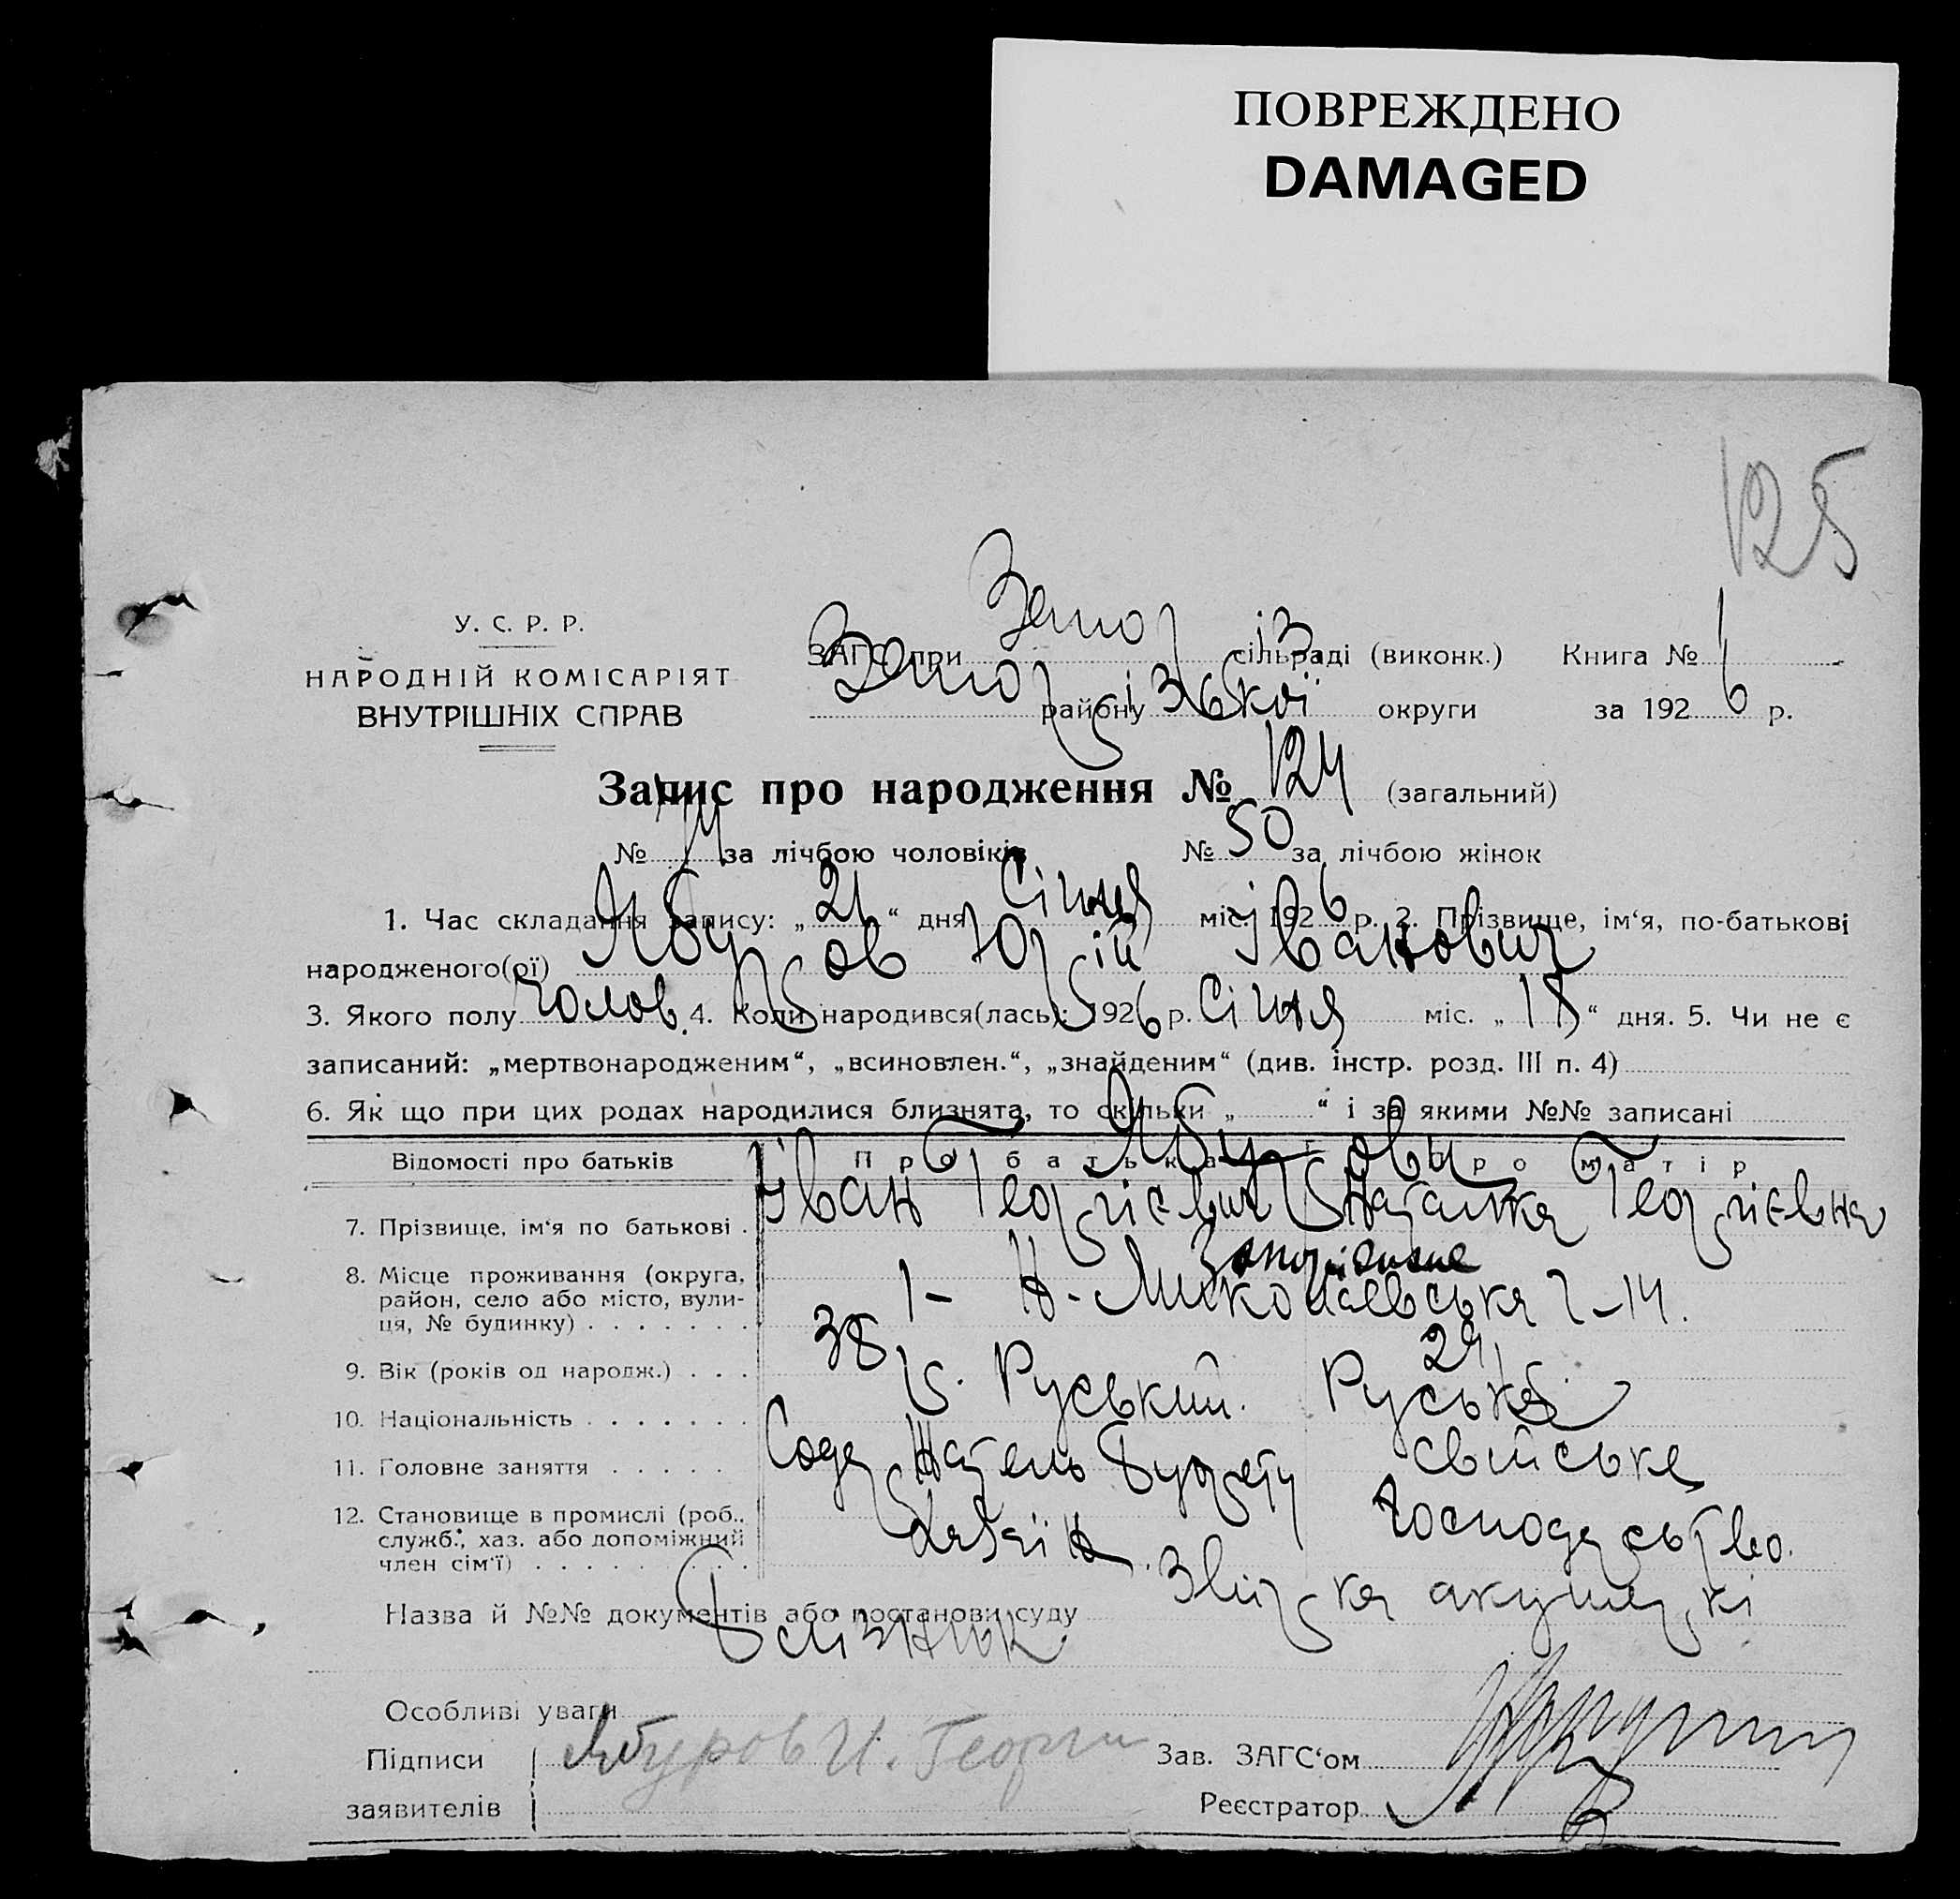 ПОВРЕЖДЕНО
DAMAGED
125
У. С. Р. Р.
НАРОДНІЙ КОМІСАРІЯТ
ВНУТРІШНІХ СПРАВ
ЗАГС при Запоріз сільраді (виконк.) Книга № 1
Запорізької району округи за 1926 р.
Запис про народження № 124 (загальний)
№ 74 за лічбою чоловіків № 50 за лічбою жінок
1. Час складання запису: „21“ дня Січня міс. 1926 р. 2. Прізвище, ім‘я, по-батькові
народженого(ої) Ябуров Юрій Іванович
3. Якого полу чолов. 4. Коли народився(лась): 1926 р. Січня міс. „18“ дня. 5. Чи не є
записаний: „мертвонародженим“, „всиновлен.“, „знайденим“ (див. інстр. розд. III п. 4)
6. Як що при цих родах народилися близнята, то скільки „ “ і за якими №№ записані
Відомості про батьків Про батька Про матір
Ябурови
7. Прізвище, ім‘я по батькові Іван Георгієвич Наталка Георгієвна
8. Місце проживання (округа, район, село або місто, вулиця, № будинку) Запоріжжя
Н-Миколаєвська 2-14.
9. Вік (років од народж.) 38 р. 29 р.
10. Національність Руський. Руська
11. Головне заняття свійське
12. Становище в промислі (роб., служб., хаз. або допоміжний член сім‘ї) Хазяїн. господарство.
Назва й №№ документів або постанови суду Звірка акушерки
Резнік
Особливі уваги
Підписи заявителів Ябуров И. Георги
Зав. ЗАГС‘ом
Реєстратор